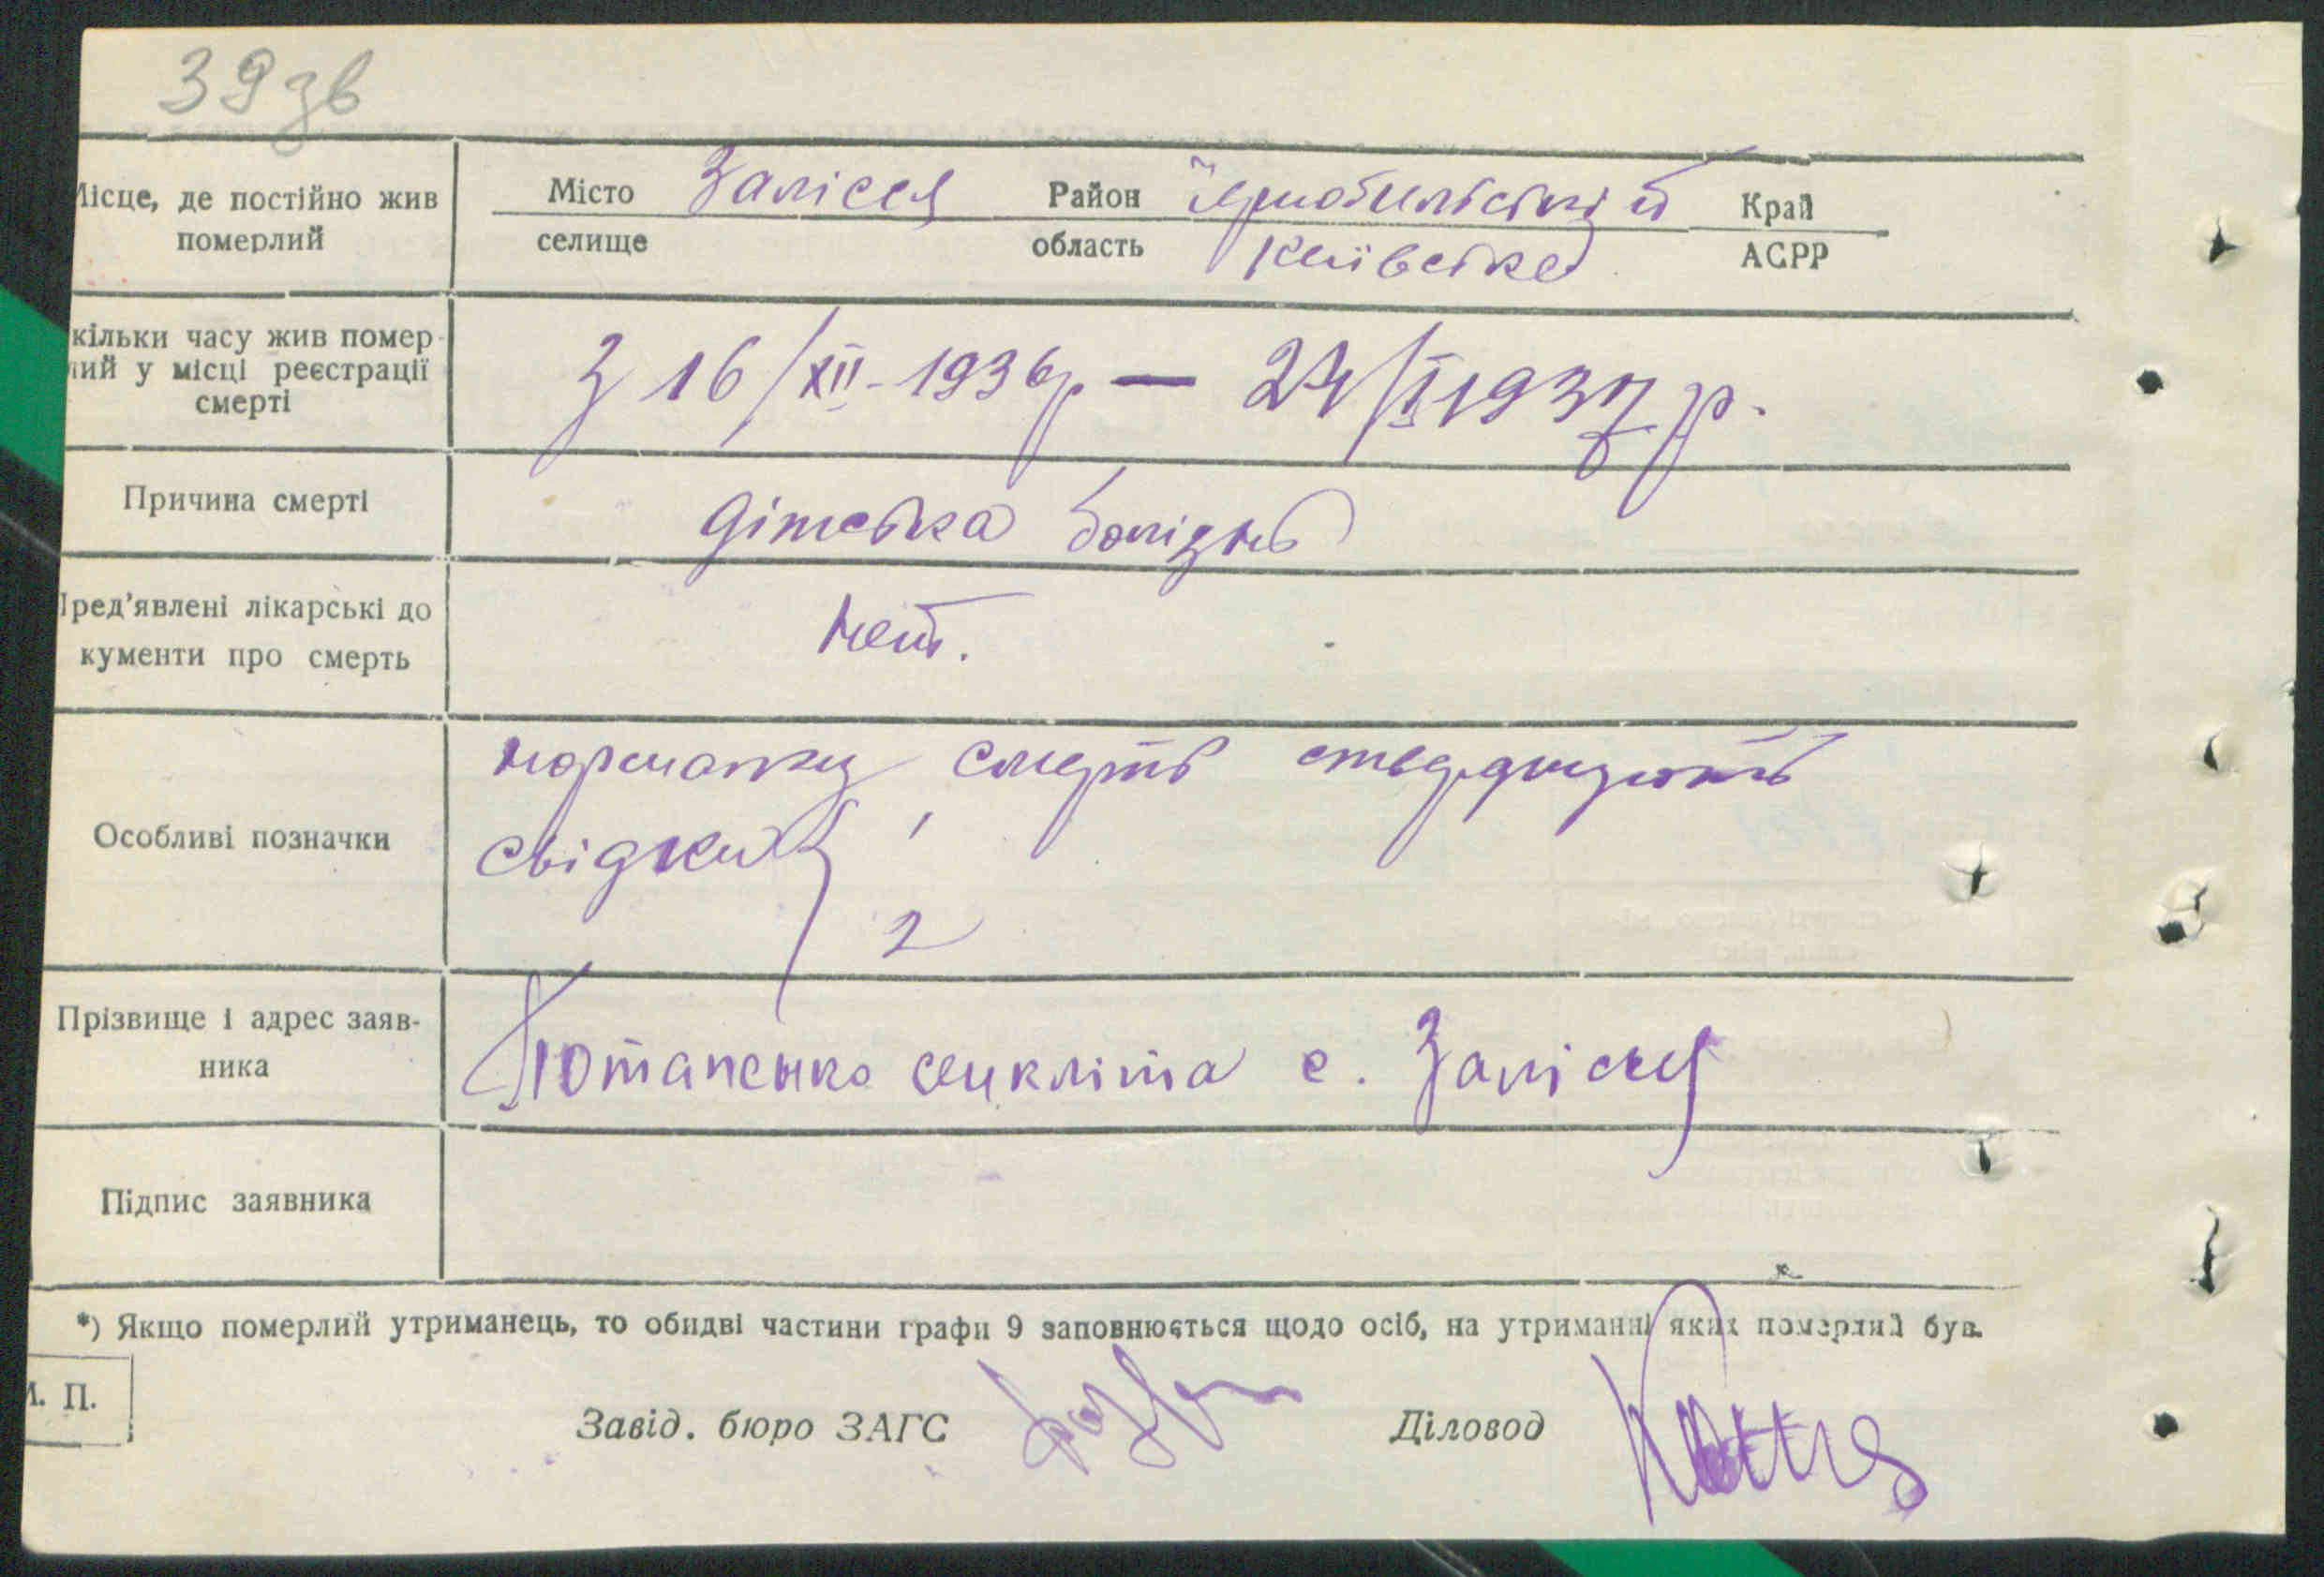 39 зв
Місце, де постійно жив
померлий
Місто Залісся Район Чорнобильський Край
селище область Київська АСРР
кільки часу жив помер-
лий у місці реєстрації
смерті
З 16/XII-1936р — 24/I 1937 р.
Причина смерті
дітська болізнь
Пред'явлені лікарські до
кументи про смерть
нет.
Особливі позначки
нормалну смерть стверджують
свідки
2
Прізвище і адрес заяв-
ника
Потапенко секліта с. Залісся
Підпис заявника
*) Якщо померлий утриманець, то обидві частини графи 9 заповнюється щодо осіб, на утриманні яких померлий був.
М. П.
Завід. бюро ЗАГС
Діловод